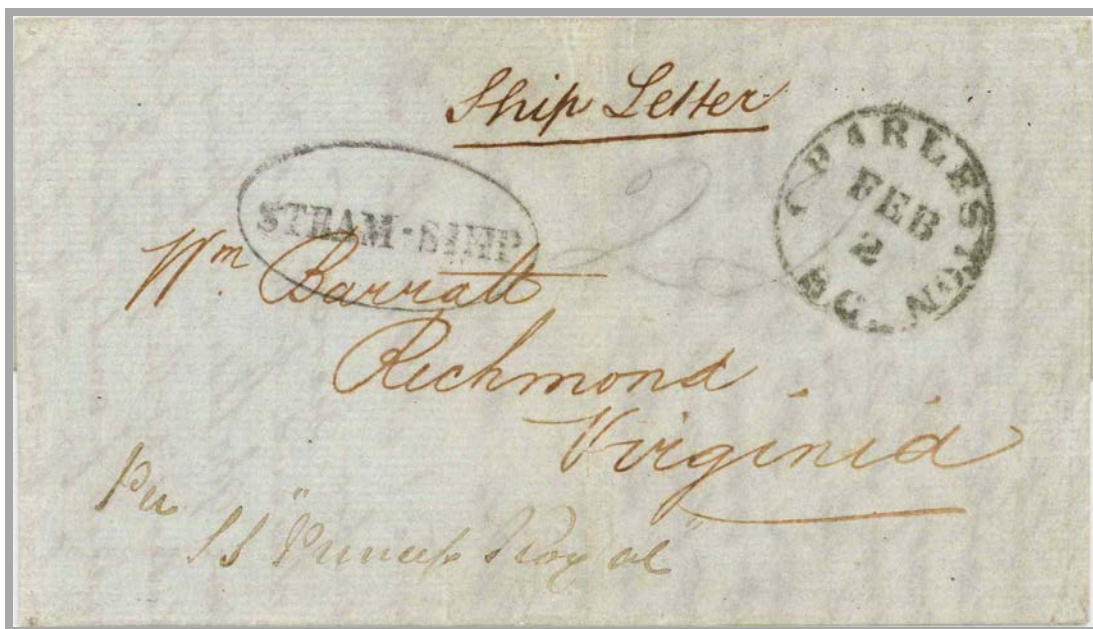 Ship Letter
STEAM-SHIP
CHARLESTON S.C.
FEB
2
Wm. Barratt
Richmond
Virginia
Per
SS "Princess Royal"